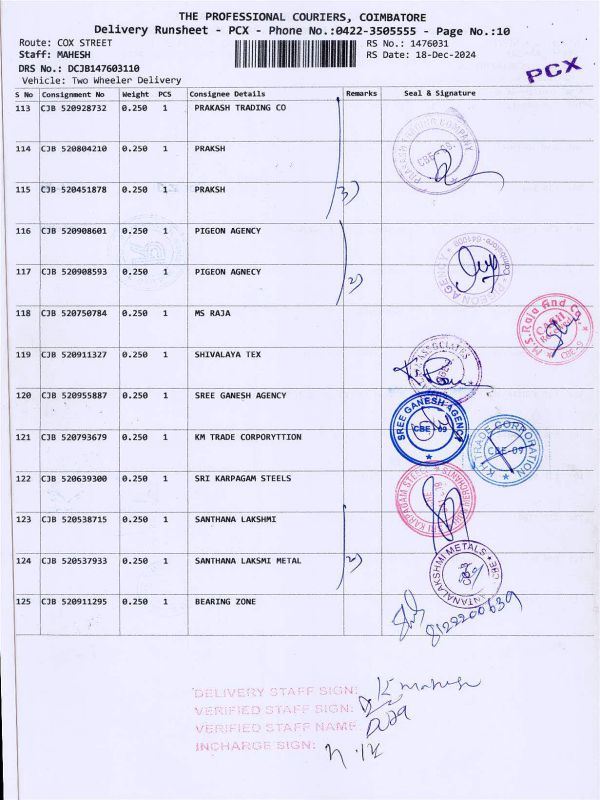 THE PROFESSIONAL COURIERS, COIMBATORE
Delivery Runsheet - PCX - Phone No.:0422-3505555 - Page No.:10
Route: COX STREET RS No.: 1476031
Staff: MAHESH RS Date: 18-Dec-2024
DRS No.: DCJB147603110
PCX
Vehicle: Two Wheeler Delivery
S No Consignment No Weight PCS Consignee Details Remarks Seal & Signature
113 CJB 520928732 0.250 1 PRAKASH TRADING CO
PRAKASH TRADING COMPANY
CBE-09
114 CJB 520804210 0.250 1 PRAKSH
115 CJB 520451878 0.250 1 PRAKSH 3)
116 CJB 520908601 0.250 1 PIGEON AGENCY
PIGEON AGENCY
117 CJB 520908593 0.250 1 PIGEON AGNECY 2)
118 CJB 520750784 0.250 1 MS RAJA
M.S.Raja And Co.
CASH
CBE-9
119 CJB 520911327 0.250 1 SHIVALAYA TEX
ASSOCIATES
120 CJB 520955887 0.250 1 SREE GANESH AGENCY
SREE GANESH AGENCY
CBE-09
121 CJB 520793679 0.250 1 KM TRADE CORPORYTTION
KM TRADE CORPORATION
CBE-09
122 CJB 520639300 0.250 1 SRI KARPAGAM STEELS
SRI KARPAGAM STEELS
123 CJB 520538715 0.250 1 SANTHANA LAKSHMI
124 CJB 520537933 0.250 1 SANTHANA LAKSMI METAL 2)
SANTANALAKSHMI METALS
CBE
125 CJB 520911295 0.250 1 BEARING ZONE
8122200639
DELIVERY STAFF SIGN: K mahesh
VERIFIED STAFF SIGN:
VERIFIED STAFF NAME:
INCHARGE SIGN: